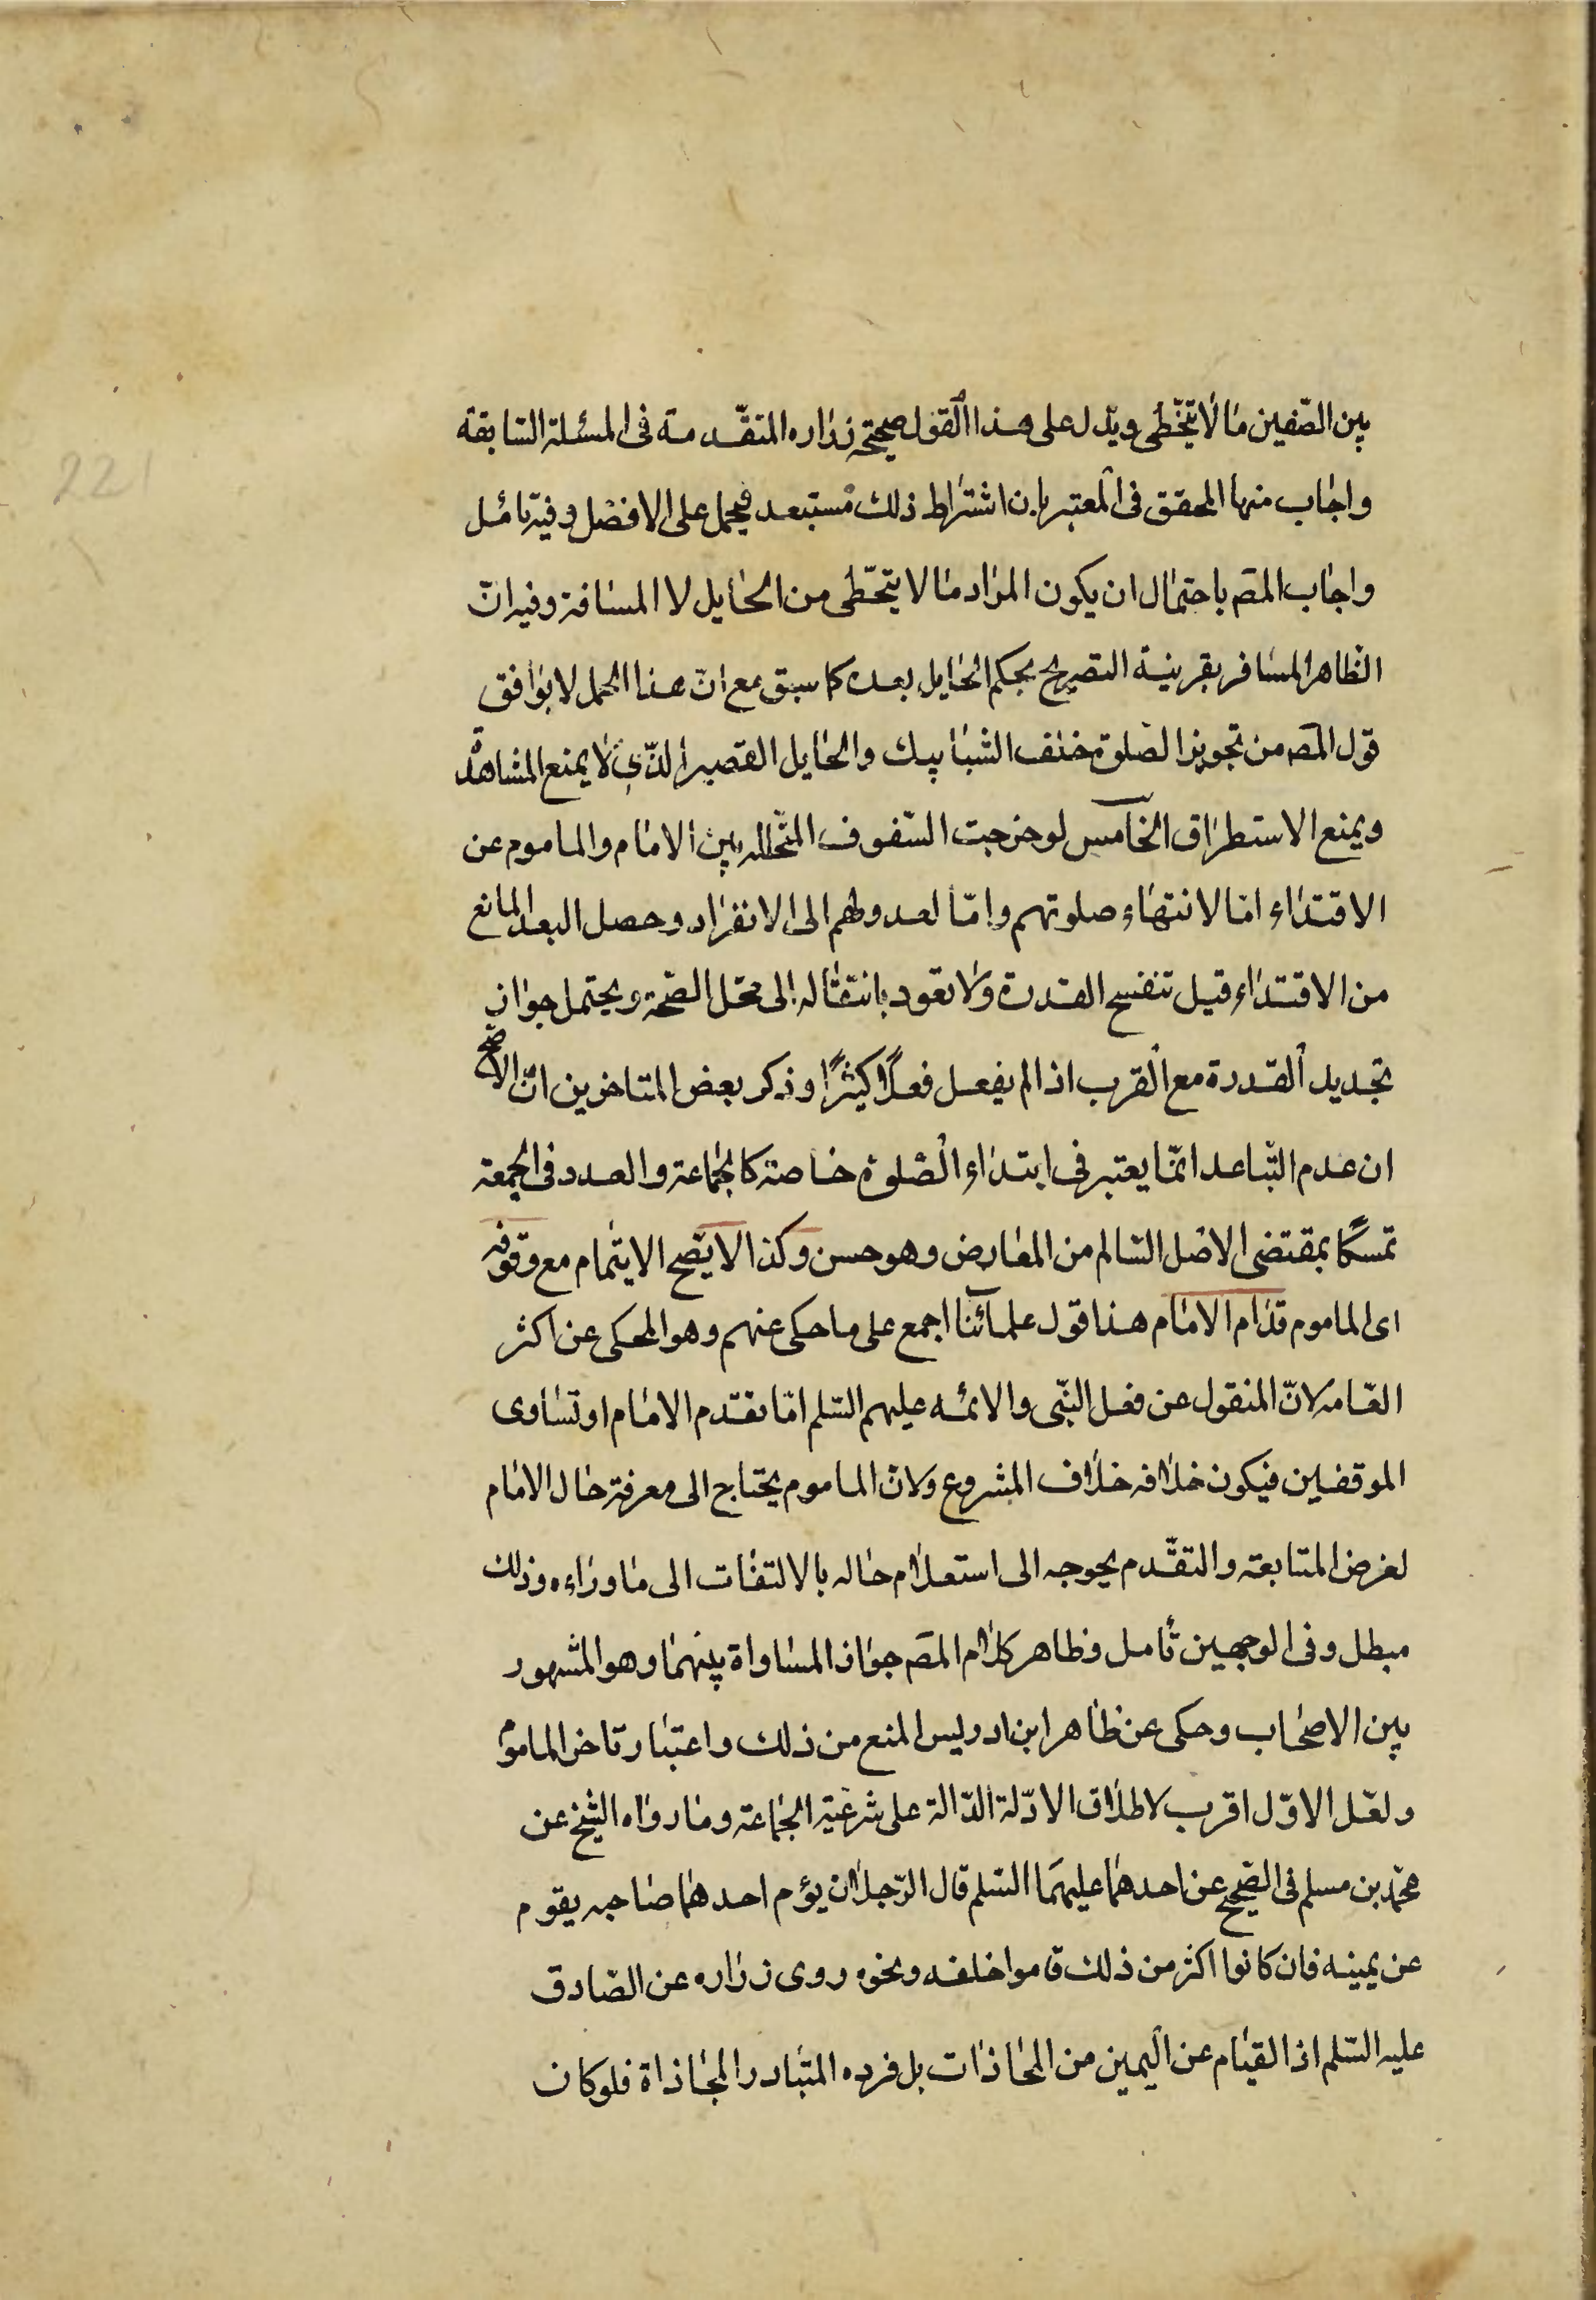 221
بين الصّفين ما لا يتخّطى ويدل على هذا القول صحيحة زراره المتقدمة فى المسئلة السّابقة
واجاب منها المحقق فى المعتبر بان اشتراط ذلك مستبعد فيحمل على الافضل وفيه تامّل
واجاب المص باحتمال ان يكون المراد ما لا يتخّطى من الحايل لا المسافة وفيه انّ
الظاهر المسافر بقرينة التصريح بحكم الحايل بعده كما سبق مع انّ هذا الحمل لا يوافق
قول المص من تجويز الصّلوة خلف الشبابيك والحايل القصير الذّى لا يمنع المشاهدة
ويمنع الاستطراق الخامس لو خرجت الصّفوف المتخلله بين الامام والماموم عن
الاقتداء امّا لانتهاء صلوتهم وامّا لعدولهم الى الانفراد وحصل البعد المانع
من الاقتداء قيل تنفسخ القدرة ولا تعود بانتقاله الى محّل الصّحة ويحتمل جواز
تجديد القدرة مع القرب اذا لم يفعل فعلًا كثيرًا وذكر بعض المتاخرين انّ الاصّح
ان عدم التّباعد انمّا يعتبر فى ابتداء الصّلوة خاصة كالجماعة والعدد فى الجمعة
تمسكًا بمقتضى الاصل السّالم من المعارض وهو حسن وكذا لا يصّح الايتمام مع وقوفه
اى الماموم قدّام الامام هذا قول علمائنا اجمع على ما حكى عنهم وهو المحكى عن اكثر
العّامه لانّ المنقول عن فعل النبّى والائمه عليهم السّلم امّا تقدم الامام او تساوى
الموقفين فيكون خلافه خلاف المشروع ولانّ الماموم يحتاج الى معرفة حال الامام
لغرض المتابعة والتقّدم يحوجه الى استعلام حاله بالالتفات الى ما وراءه وذلك
مبطل وفى الوجهين تأمل وظاهر كلام المص جواز المساواة بينهما وهو المشهور
بين الاصحاب وحكى عن ظاهر ابن ادريس المنع من ذلك واعتبار تاخر الماموم
ولعّل الاوّل اقرب لاطلاق الادّلة الدّالة على شرعّية الجماعة وما رواه الشّيخ عن
محمّد بن مسلم فى الصّحيح عن احدهما عليهما السّلم قال الرّجلان يؤم احدهما صاحبه يقوم
عن يمينه فان كانوا اكثر من ذلك قاموا خلفه ونحوه روى زراره عن الصّادق
عليه السّلم اذ القيام عن اليمين من المحاذات بل فرده المتبادر المحاذاة فلو كان